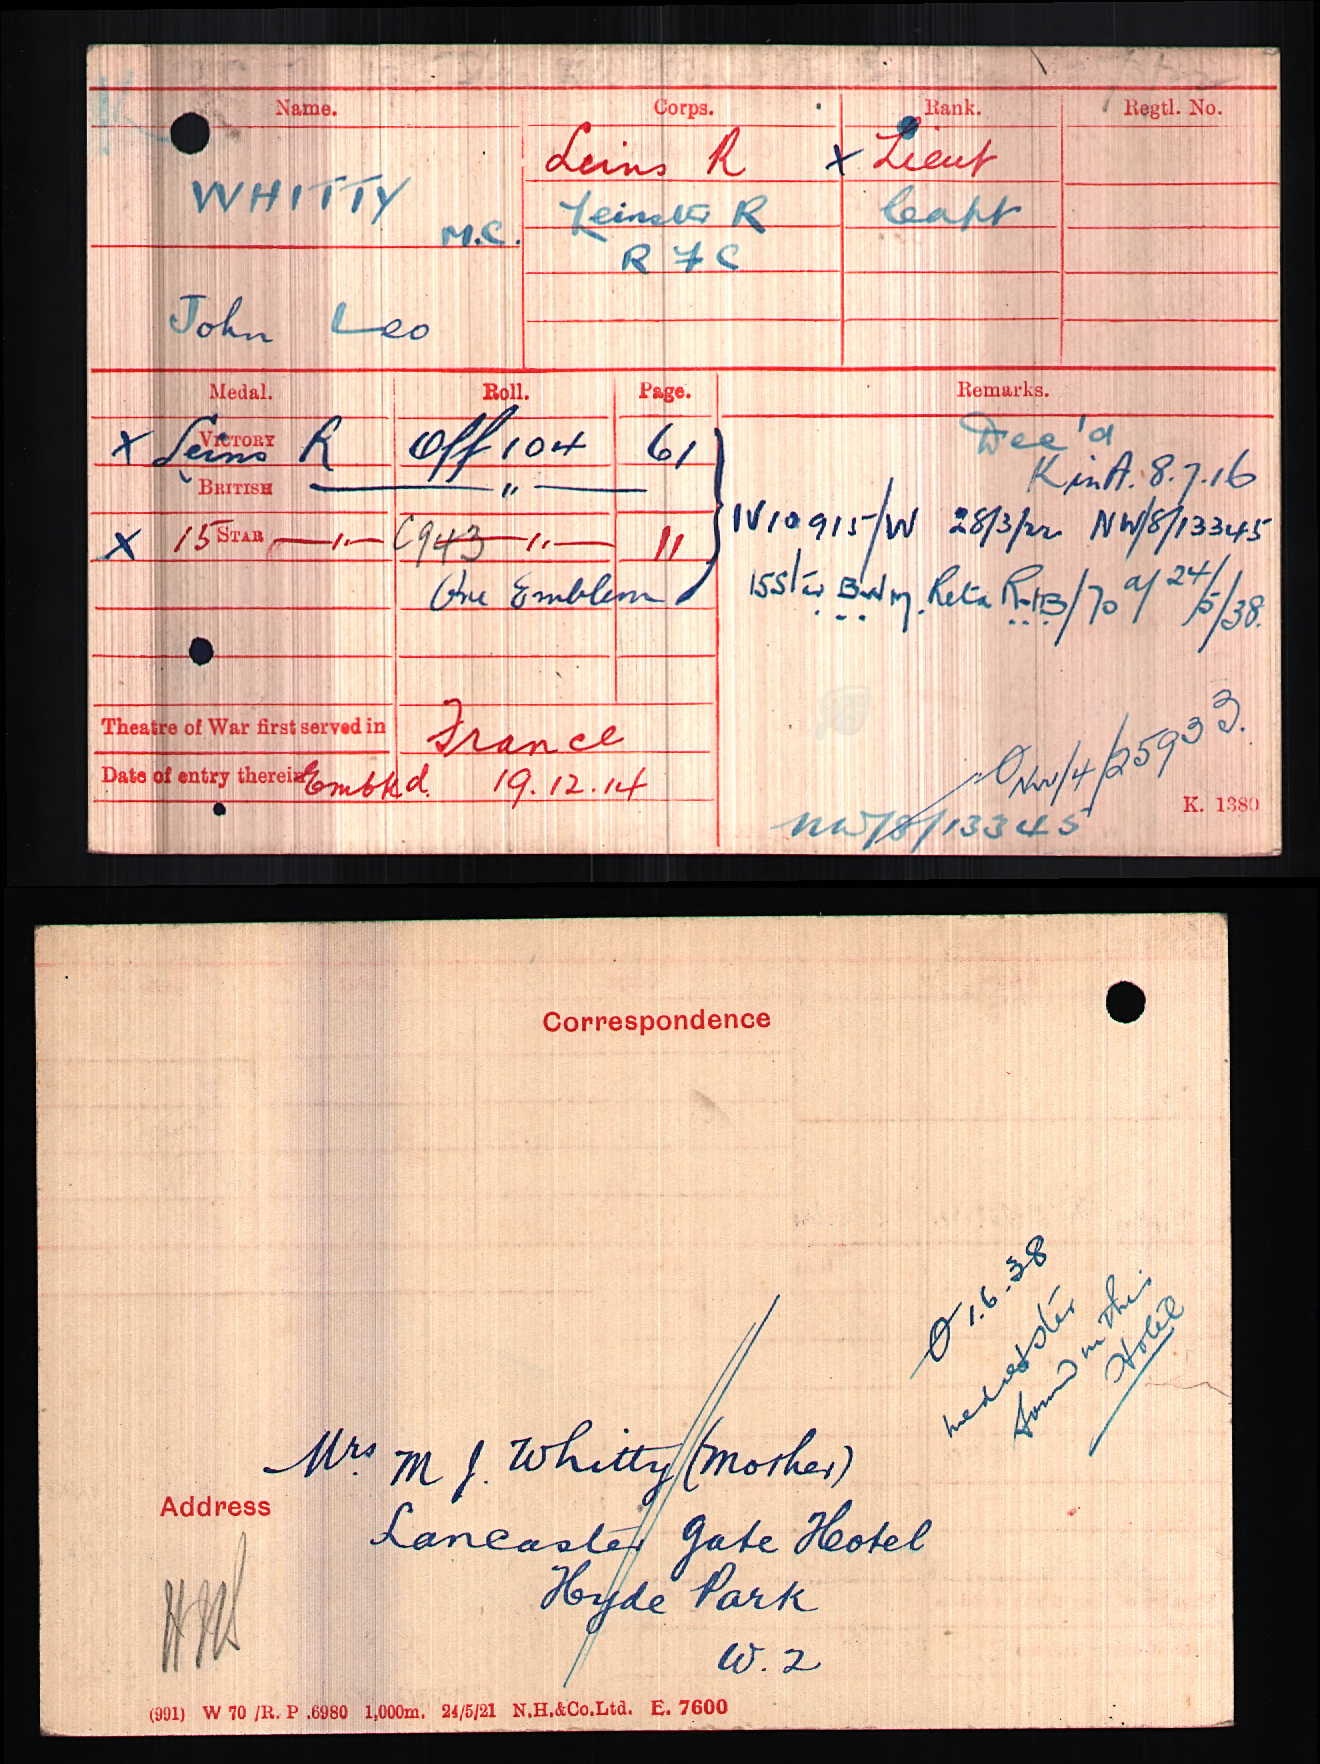 Name. Corps. Rank. Regtl. No.
WHITTY M.C. Leins R X Lieut
Leinster R Capt
R F C
John Leo
Medal. Roll. Page. Remarks.
X VICTORY Leins R Off 104 61 Dec'd
K in A. 8.7.16
BRITISH — " —
IV10915/W 28/3/22 NW/8/13345
X 15 STAR —"— C943 —"— "
One Emblem
15 Star BWM. Retd R-1B/70 d/ 24/5/38.
Theatre of War first served in France
Date of entry therein Embkd. 19.12.14
O NW/4/25933.
NW/8/13345
K. 1380
Correspondence
O 1.6.38
in this
Hotel
Mrs. M J. Whitty (Mother)
Address
Lancaster Gate Hotel
Hyde Park
W. 2
(991) W 70 /R. P .6980 1,000m. 24/5/21 N.H.&Co.Ltd. E. 7600